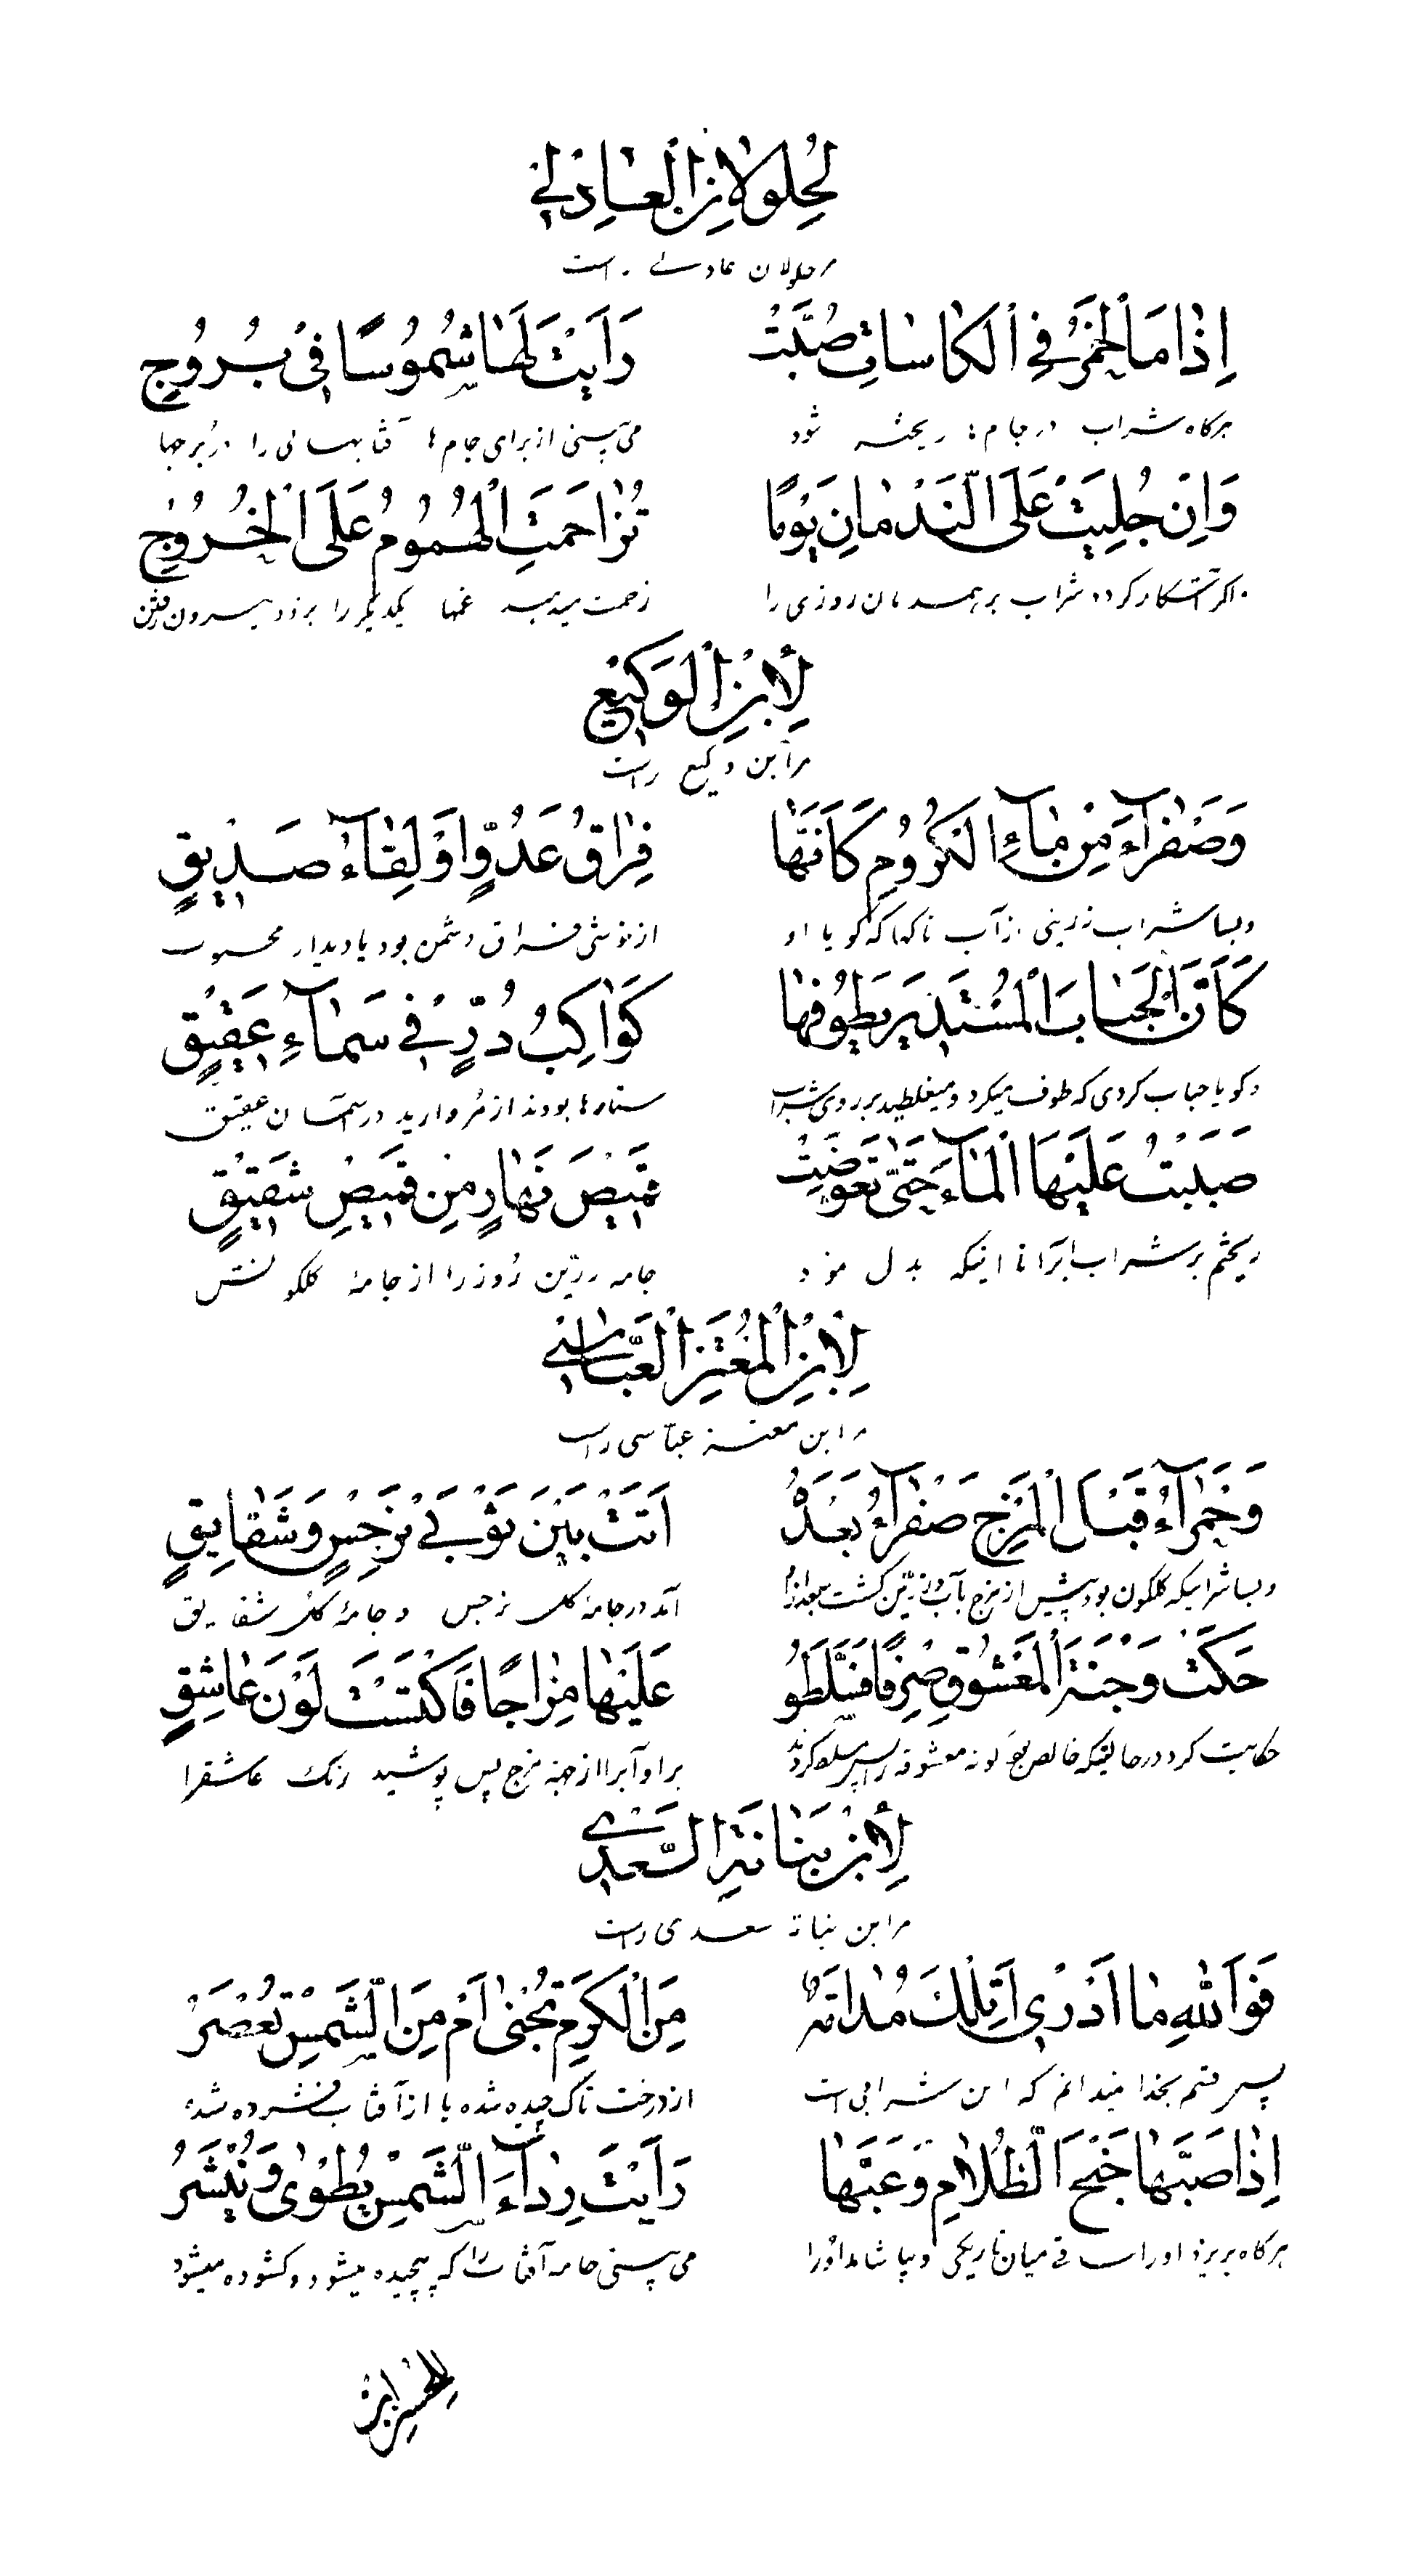 لِحُلْوَانِ الْعَادِلِي
مر حلوان عادلی راست
اِذٰا مَا الْخَمْرُ فِي الْكٰاسٰاتِ صُبَّتْ رَاَيْتَ لَهٰا شُمُوسًا فِي بُرُوجِ
هرگاه شراب در جام ها ریخته شود می بینی از برای جام ها آفتابهائی را در برجها
وَاِنْ جُلِيَتْ عَلَى النَّدْمٰانِ يَوْمًا تَزٰاحَمَتِ الْهُمُومُ عَلَى الْخُرُوجِ
اگر آشکار گردد شراب بر همدمان روزی را زحمت میدهد غمها یکدیگر را بزود بیرون رفتن
لِأَبْنِ الْوَكِيْعِ
مر ابن وکیع راست
وَصَفْرٰآءَ مِنْ مٰآءِ الْكُرُومِ كَاَنَّهٰا فِرٰاقُ عَدُوٍّ اَوْ لِقٰآءُ صَدِيقٍ
وبسا شراب زرینی از آب تاکها که گویا او از خوشی فراق دشمن بود یا دیدار محبوب
كَاَنَّ الْحَبٰابَ الْمُسْتَدِيرَ يَطُوفُهٰا كَوٰاكِبُ دُرٍّ فِي سَمٰآءِ عَقِيْقٍ
و گویا حباب گردی که طوف میکرد و میغلطید بر روی شراب ستاره ها بودند از مروارید در آسمان عقیق
صَبَبْتُ عَلَيْهَا الْمٰآءَ حَتّٰى تَعَوَّضَتْ قَمِيْصَ نَهٰارٍ مِنْ قَمِيصِ شَقِيْقٍ
ریختم بر شراب آبرا تا اینکه بدل نمود جامه زرین روز را از جامه گلگونش
لِابْنِ الْمُعْتَزِّ الْعَبّٰاسِي
مر ابن معتز عباسی راست
وَحَمْرٰآءُ قَبْلَ الْمَزْجِ صَفْرٰآءُ بَعْدَهُ اَتَتْ بَيْنَ ثَوْبَيْ نَرْجِسٍ وَشَقٰايِقٍ
وبسا شرابیکه گلگون بود پیش از مزج بآب و زرین گشت بعد از آن آمد در جامهٔ گل نرجس و جامهٔ گل شقایق
حَكَتْ وَجْنَةَ الْمَعْشُوقِ صِرْفًا فَسَلَّطُوا عَلَيْهٰا مِزٰاجًا فَاكْتَسَتْ لَوْنَ عٰاشِقٍ
حکایت کرد در حالیکه خالص بود گونه معشوقه را پس مسلط کردند بر او آبرا از جهة مزج پس پوشید رنگ عاشقرا
لِأَبْنِ نَبٰاتَةِ السَّعْدِي
مر ابن نباته سعدی راست
فَوَاللهِ مٰا اَدْرِي اَتِلْكَ مُدٰامَةٌ مِنَ الْكَرْمِ تُجْنٰى اَمْ مِنَ الشَّمْسِ تُعْصَرُ
پس قسم بخدا نمیدانم که این شرابی است از درخت تاک چیده شده یا از آفتاب فشرده شده
اِذٰا صَبَّهٰا جَنْحَ الظَّلٰامِ وَعَبَّهٰا رَاَيْتَ رِدٰآءَ الشَّمْسِ يُطْوٰى وَيُنْشَرُ
هرگاه بریزد او را در میان تاریکی و بیاشامد او را می بینی جامه آفتاب را که پیچیده میشود و گشوده میشود